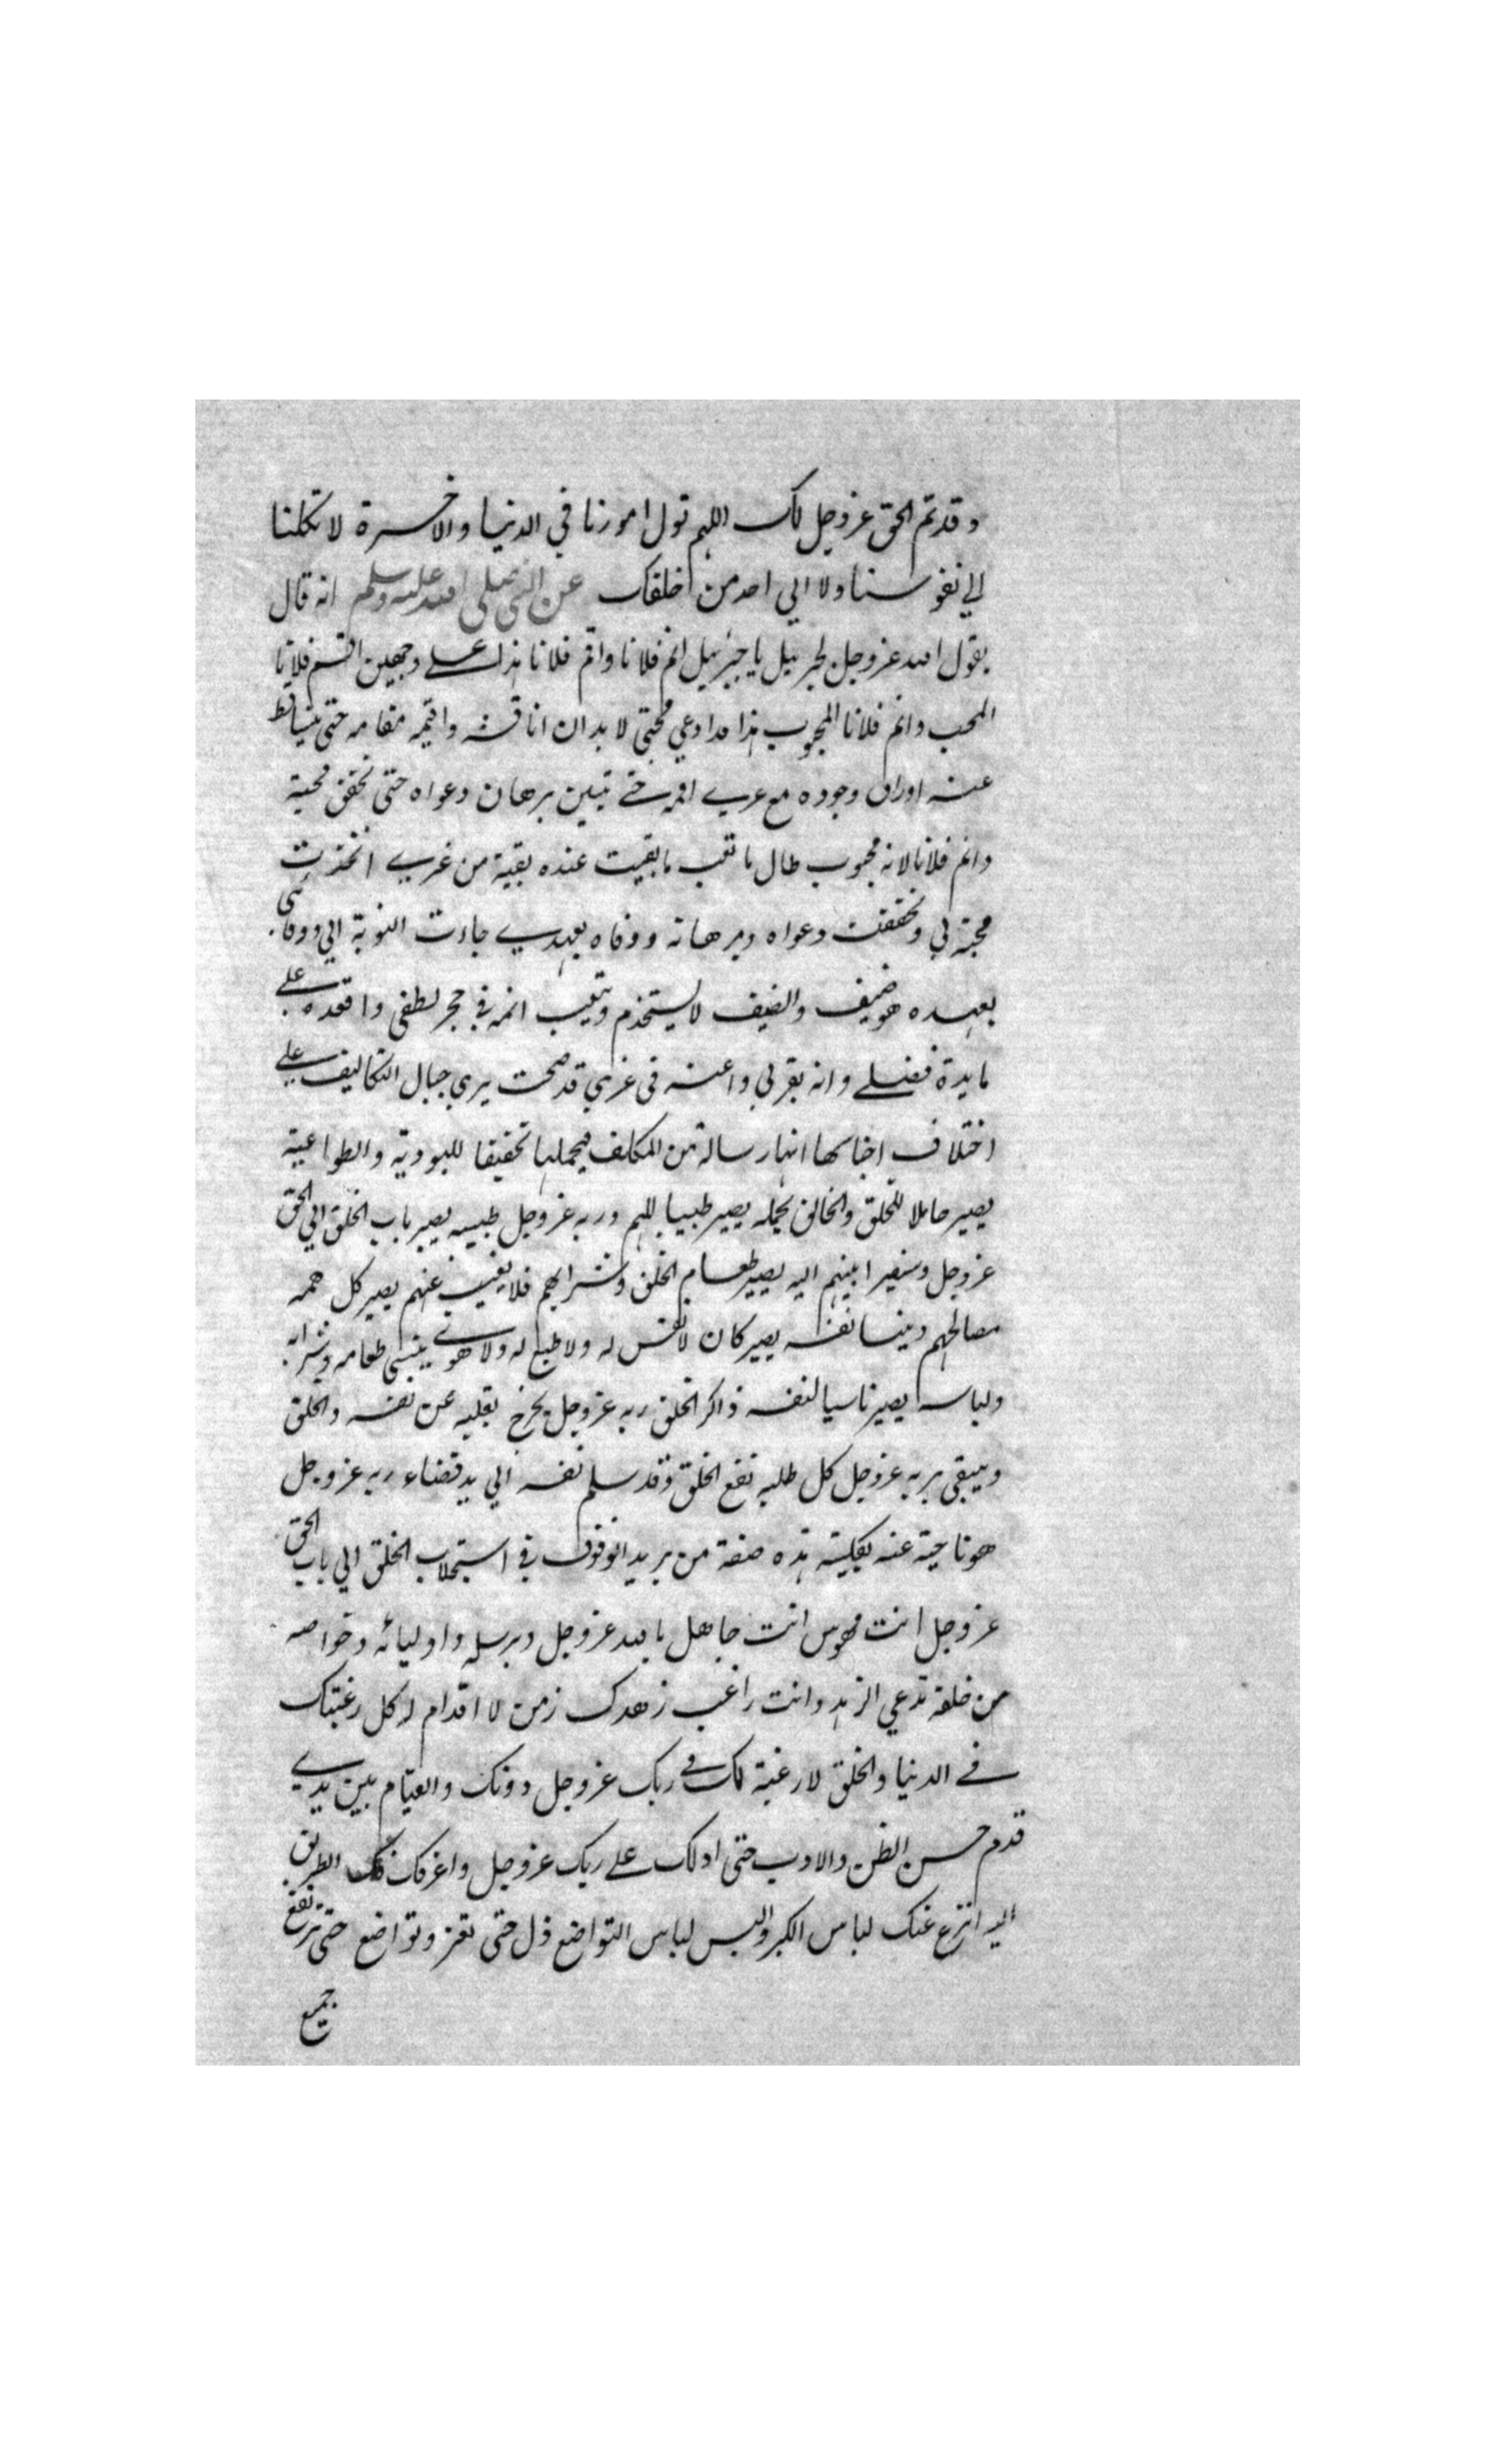 وقد تم الحق عز وجل لك اللهم تول امورنا في الدنيا والاخسرة لا تكلنا
الي نفوسنا ولا الي احد من خلقك عن النبي صلي الله عليه وسلم انه قال
يقول الله عز وجل لجبرئيل يا جبرئيل انم فلانا واقم فلانا هذا علي وجهين اقم فلانا
المحب وانم فلانا المحبوب هذا مدا دعي محبتي لا بد ان اناقشه واقيمه مقامه حتي يتساقط
عنه اوراق وجوده مع غيري اقمه حتي تتبين برهان دعواه حتي تحقق محبة
وانم فلانا لانه محبوب طال ما تعب ما بقيت عنده بقية من غيري اتخذت
محبته لي وتحققت دعواه وبرهانه ووفاه بعهدي جاءت النوبة الي ووفائي
بعهده هو ضيف والضيف لا يستخدم ويتعب انمه في حجر لطفي واقعده علي
مايدة فضلي وانه بقربي واغنه في غربي قد صحت يري جبال التكاليف علي
اختلاف اجناسها انها رسالة من المكلف فيحملها تخفيفا للعبودية والطواعية
يصير حاملا للخلق والخالق يحمله يصير طبيبا للهم وربه عز وجل طبيبه يصير باب الخلق الي الحق
عز وجل وسفيرا بينهم اليه يصير طعام الخلق وشرابهم فلا يغيب عنهم يصير كل همه
مصالحهم وينسا نفسه يصير كان لا نفس له ولا طبع له ولا هوي ينسي طعامه وشرابه
ولباسه يصير ناسيا لنفسه ذاكر الخلق ربه عز وجل يخرج بقلبه عن نفسه والخلق
ويبقي بربه عز وجل كل طلبه نفع الخلق وقد سلم نفسه الي يد قضاء ربه عز وجل
هو ناحية عنه بكليته هذه صفة من يريد الوقوف في استجلاب الخلق الي باب الحق
عز وجل انت مهوس انت جاهل بالله عز وجل وبرسله واوليائه وخواصه
من خلقه تدعي الزهد وانت راغب زهدك زمن لا اقدام له كل رغبتك
في الدنيا والخلق لا رغبة لك في ربك عز وجل دونك والقيام بين يدي
قدم حسن الظن والادب حتي ادلك علي ربك عز وجل واعرفك الطريق
اليه انزع عنك لباس الكبر والبس لباس التواضع ذل حتي تعز وتواضع حتي ترتفع
جميع